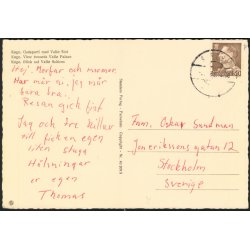 Køge. Gadeparti mod Vallø Slot
Køge. View towards Vallø Palace
Køge. Blick auf Vallø Schloss
Hej, Morfar och mormor.
Har mår ni, jag mår
bara bra.
Resan gick fint
Jag och tre killar
till fick en egen
liten stuga
Hälsningar
er egen
Thomas
Fam. Oskar Sundman
Jon Erikssonsgatan 12
Stockholm
Sverige